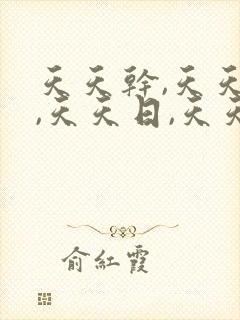 天天幹,天天
,天天日,天天
俞紅霞